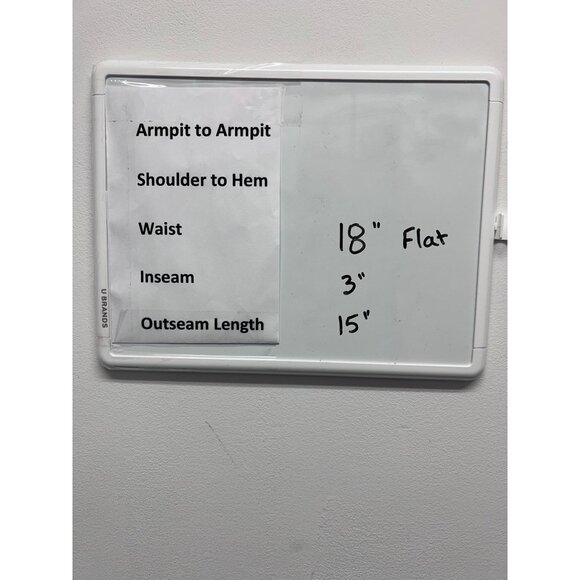 Armpit to Armpit
Shoulder to Hem
Waist 18" Flat
Inseam 3"
Outseam Length 15"
U BRANDS